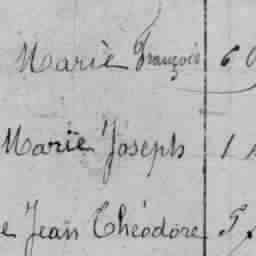 Marie François 6
Marie Joseph 1
e Jean Théodore